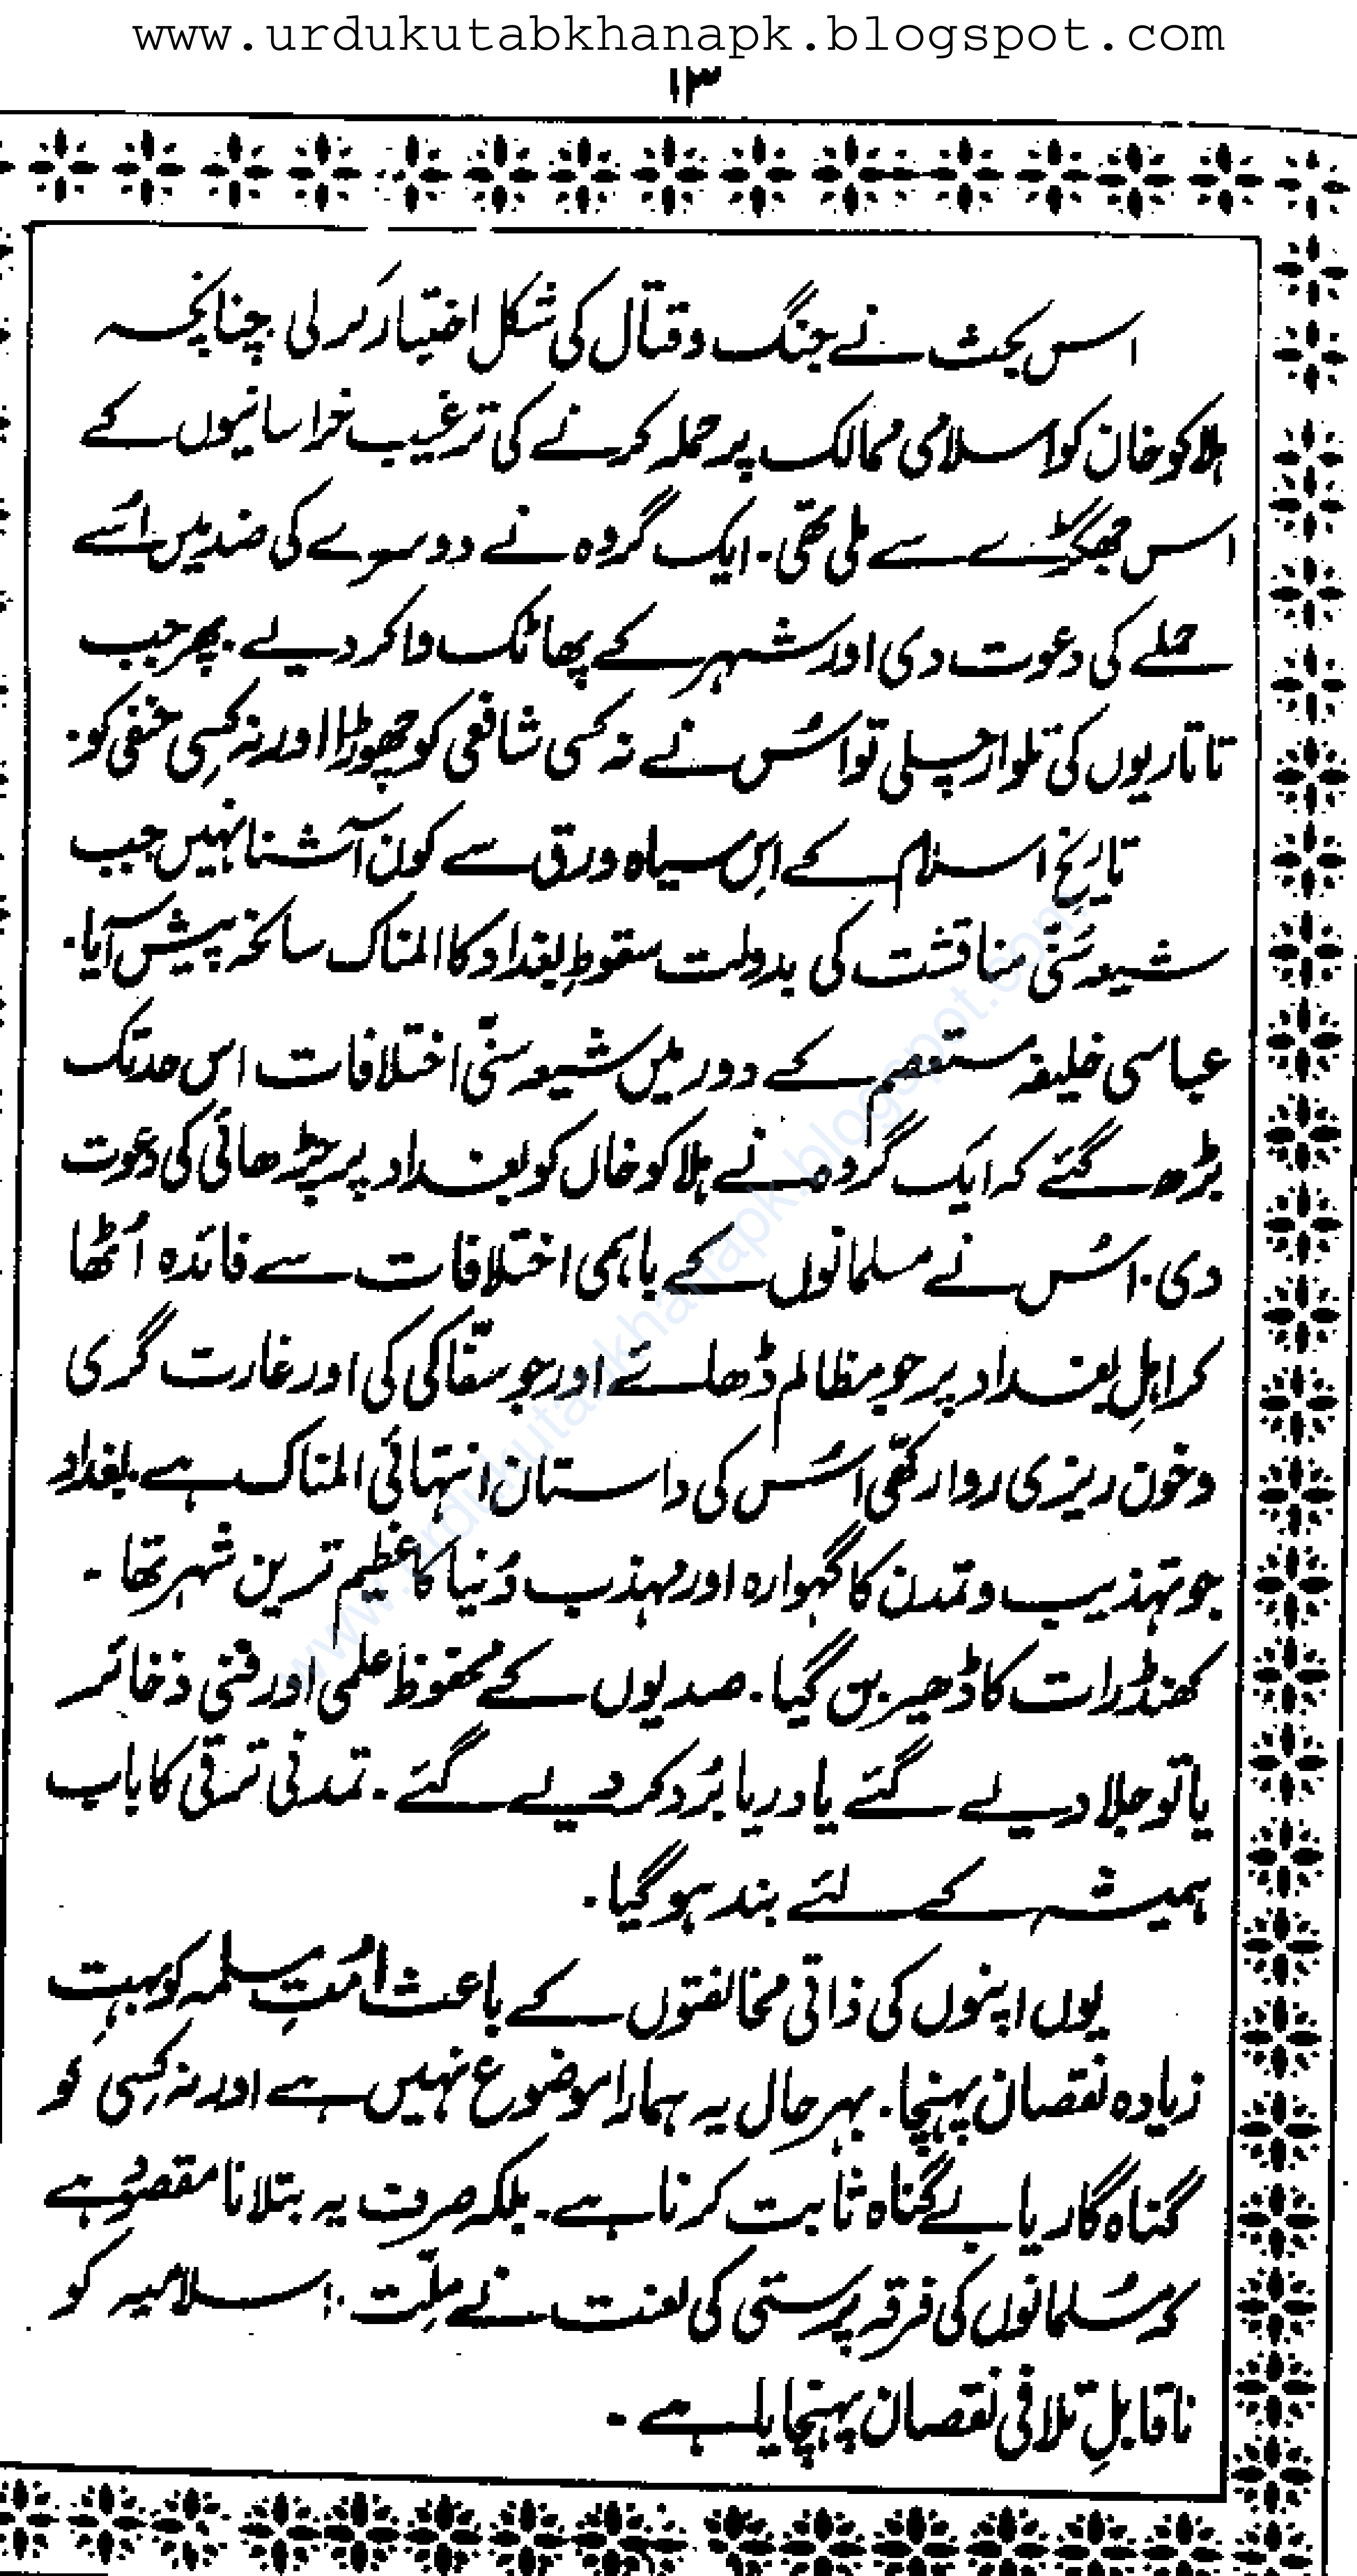 www.urdukutabkhanapk.blogspot.com
۱۳
اس بحث نے جنگ و قتال کی شکل اختیار کر لی۔ چنانچہ
ہلاکو خان کو اسلامی ممالک پر حملہ کرنے کی ترغیب خراسانیوں کے
اس جھگڑے سے ملی تھی۔ ایک گروہ نے دوسرے کی ضد میں اُسے
حملے کی دعوت دی اور شہر کے پھاٹک وا کر دیے۔ پھر جب
تاتاریوں کی تلوار چلی تو اُس نے نہ کسی شافعی کو چھوڑا اور نہ کِسی حنفی کو۔
تاریخِ اسلام کے اِس سیاہ ورق سے کون آشنا نہیں جب
شیعہ سُنّی مناقشت کی بدولت سقوطِ بغداد کا المناک سانحہ پیش آیا۔
عباسی خلیفہ مستعصم کے دور میں شیعہ سنّی اختلافات اس حد تک
بڑھ گئے کہ ایک گروہ نے ہلاکو خاں کو بغداد پر چڑھائی کی دعوت
دی۔ اُس نے مسلمانوں کے باہمی اختلافات سے فائدہ اُٹھا
کر اہلِ بغداد پر جو مظالم ڈھائے اور جو سفّاکی کی اور غارت گری
و خون ریزی روا رکھّی اُس کی داستان انتہائی المناک ہے۔ بغداد
جو تہذیب و تمدن کا گہوارہ اور مہذب دُنیا کا عظیم ترین شہر تھا ۔
کھنڈرات کا ڈھیر بن گیا۔ صدیوں کے محفوظ علمی اور فنی ذخائر
یا تو جلا دیے گئے یا دریا بُرد کر دیے گئے۔ تمدنی ترقی کا باب
ہمیشہ کے لئے بند ہو گیا۔
یوں اپنوں کی ذاتی مخالفتوں کے باعث اُمتِ مسلمہ کو بہت
زیادہ نقصان پہنچا۔ بہر حال یہ ہمارا موضوع نہیں ہے اور نہ کِسی کو
گناہ گار یا بے گناہ ثابت کرنا ہے۔ بلکہ صرف یہ بتلانا مقصود ہے
کہ مُسلمانوں کی فرقہ پرستی کی لعنت نے ملّتِ اسلامیہ کو
ناقابلِ تلافی نقصان پہنچایا ہے ۔
www.urdukutabkhanapk.blogspot.com